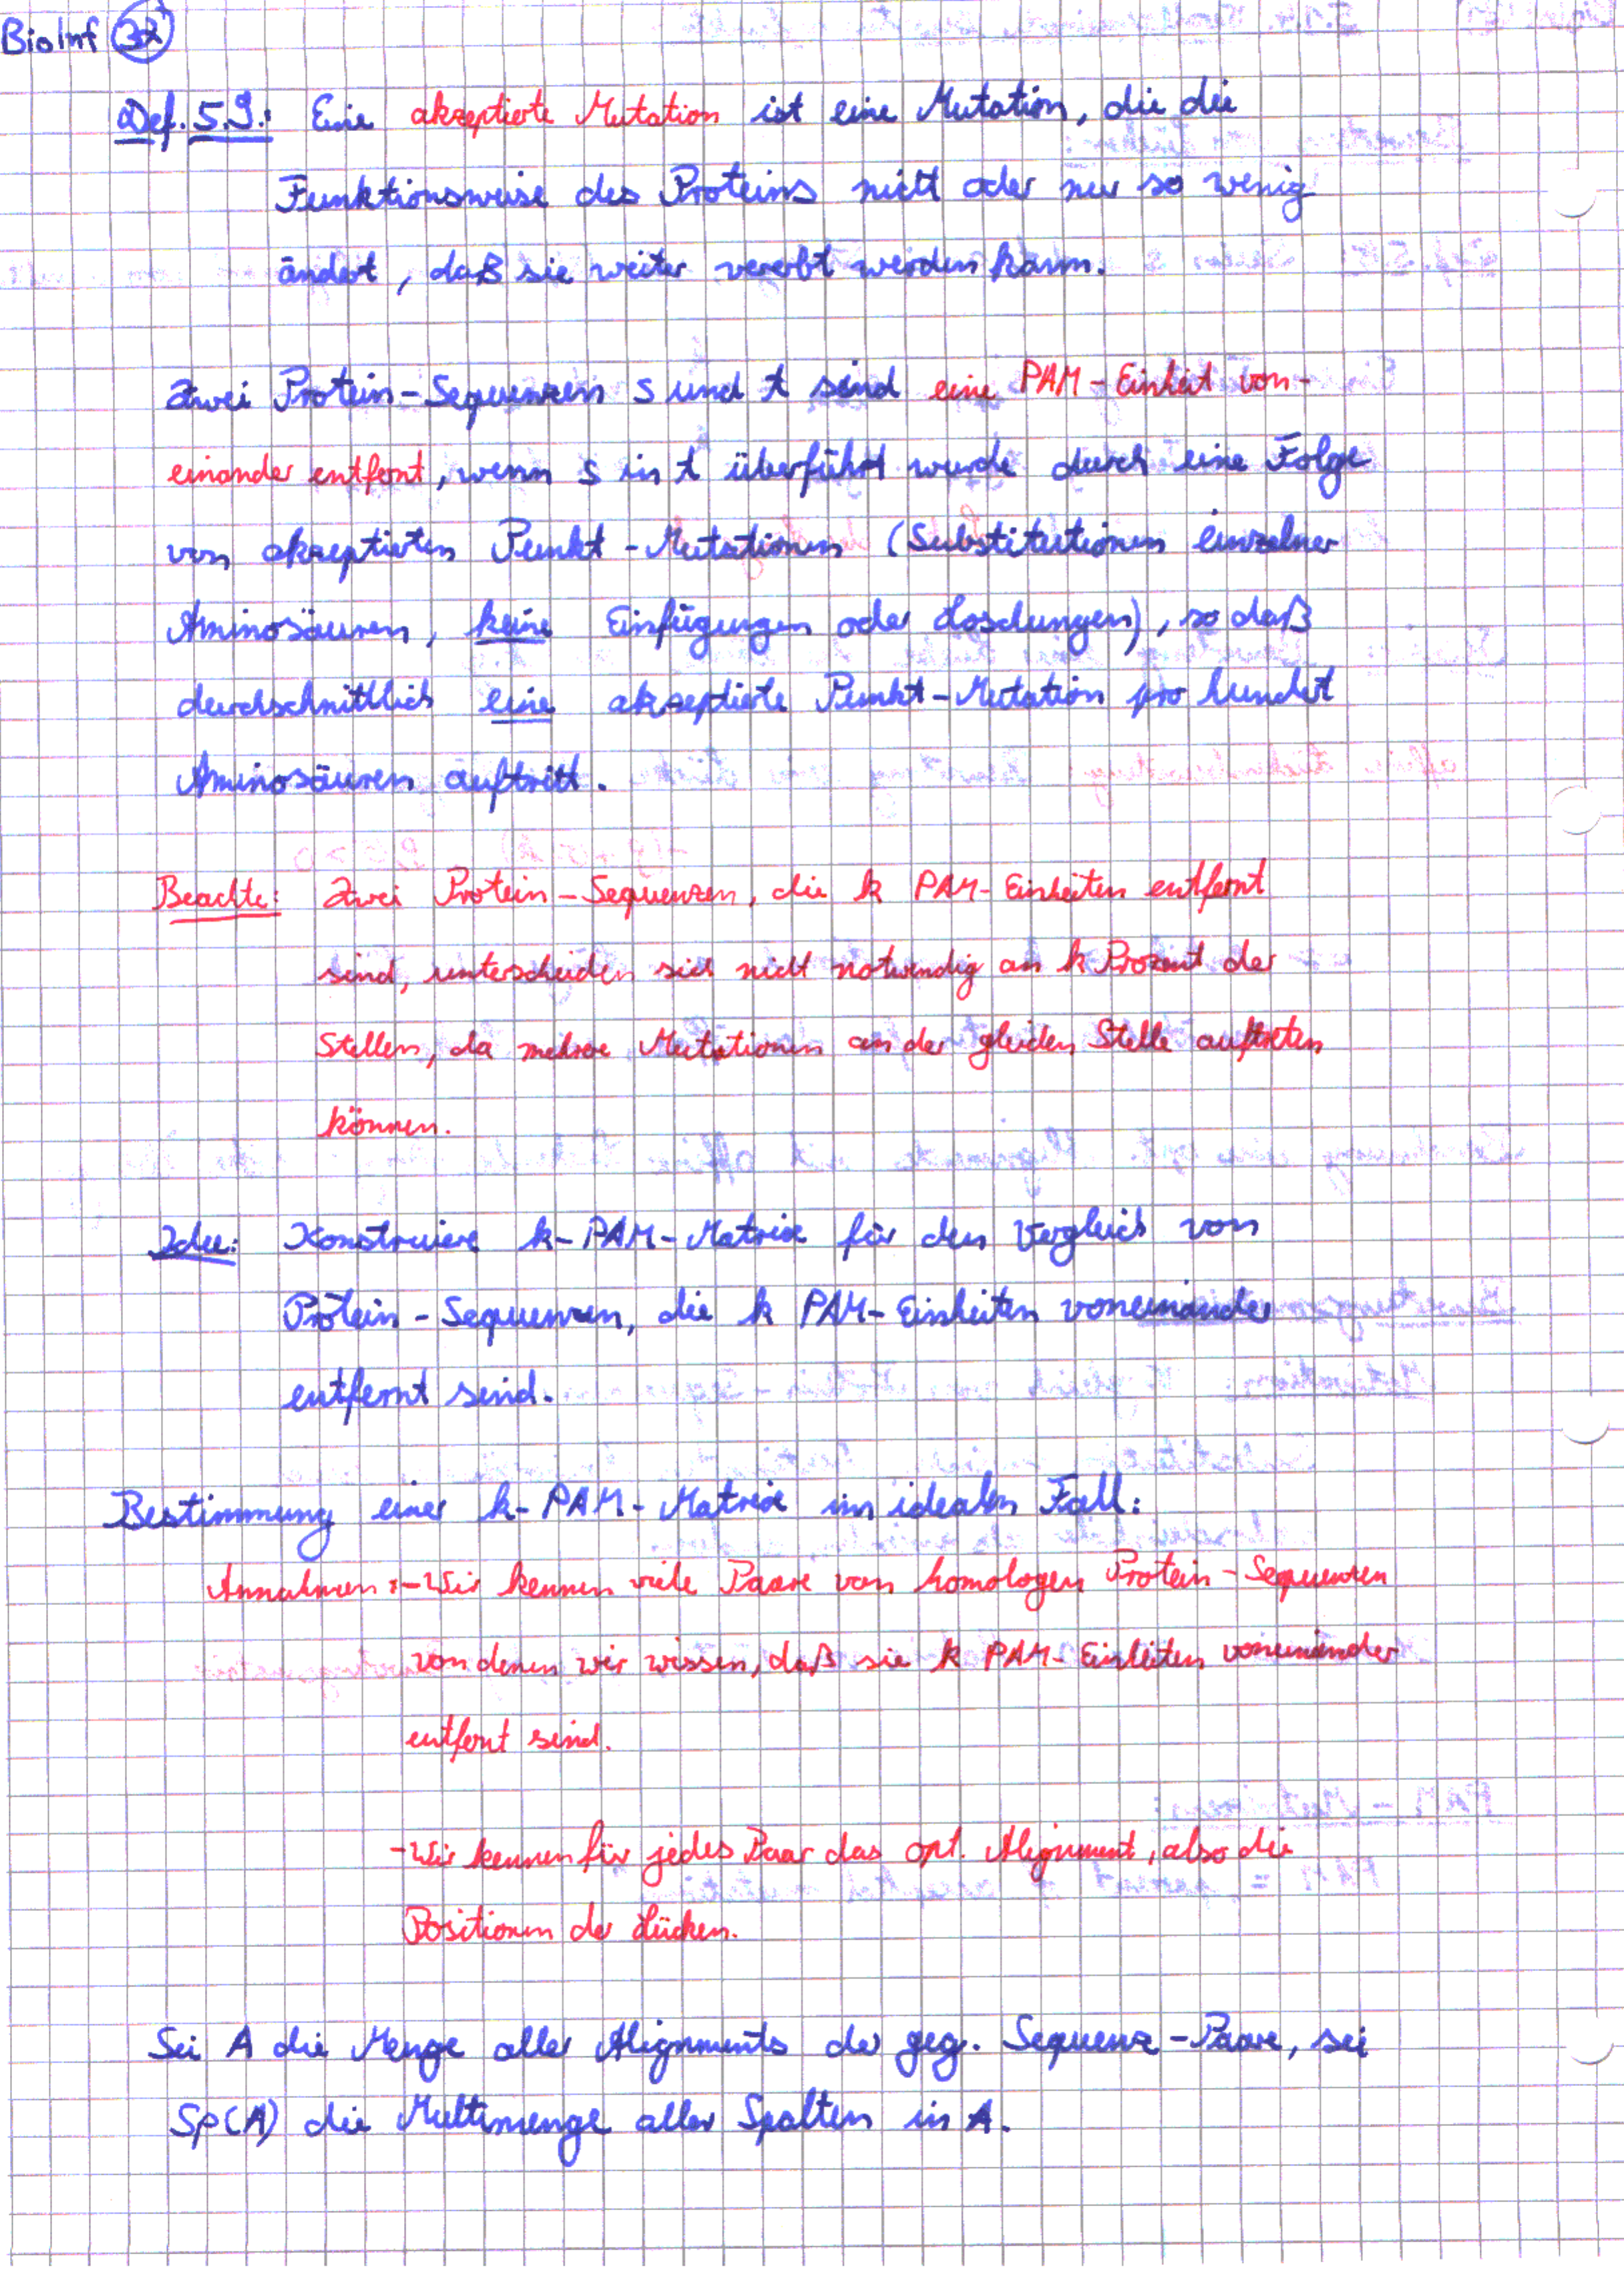 BioInf 32
Def. 5.9.: Eine akzeptierte Mutation ist eine Mutation, die die
Funktionsweise des Proteins nicht oder nur so wenig
ändert, daß sie weiter vererbt werden kann.
Zwei Protein-Sequenzen s und t sind eine PAM-Einheit von-
einander entfernt, wenn s in t überführt wurde durch eine Folge
von akzeptierten Punkt-Mutationen (Substitutionen einzelner
Aminosäuren, keine Einfügungen oder Löschungen), so daß
durchschnittlich eine akzeptierte Punkt-Mutation pro hundert
Aminosäuren auftritt.
Beachte: Zwei Protein-Sequenzen, die k PAM-Einheiten entfernt
sind, unterscheiden sich nicht notwendig an k Prozent der
Stellen, da mehrere Mutationen an der gleichen Stelle auftreten
können.
Idee: Konstruiere k-PAM-Matrix für den Vergleich von
Protein-Sequenzen, die k PAM-Einheiten voneinander
entfernt sind.
Bestimmung einer k-PAM-Matrix im idealen Fall:
Annahmen: - Wir kennen viele Paare von homologen Protein-Sequenzen
von denen wir wissen, daß sie k PAM-Einheiten voneinander
entfernt sind.
- Wir kennen für jedes Paar das opt. Alignment, also die
Positionen der Lücken.
Sei A die Menge aller Alignments der geg. Sequenz-Paare, sei
Sp(A) die Multimenge aller Spalten in A.